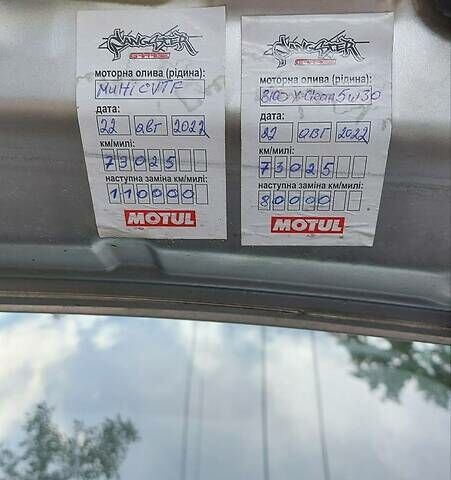 GANGSTER
моторна олива (рідина):
Multi CVTF
дата:
22 авг 2022
км/милі:
73025
наступна заміна км/милі:
110000
MOTUL
GANGSTER
моторна олива (рідина):
8100 X-Clean 5w30
дата:
22 авг 2022
км/милі:
73025
наступна заміна км/милі:
80000
MOTUL